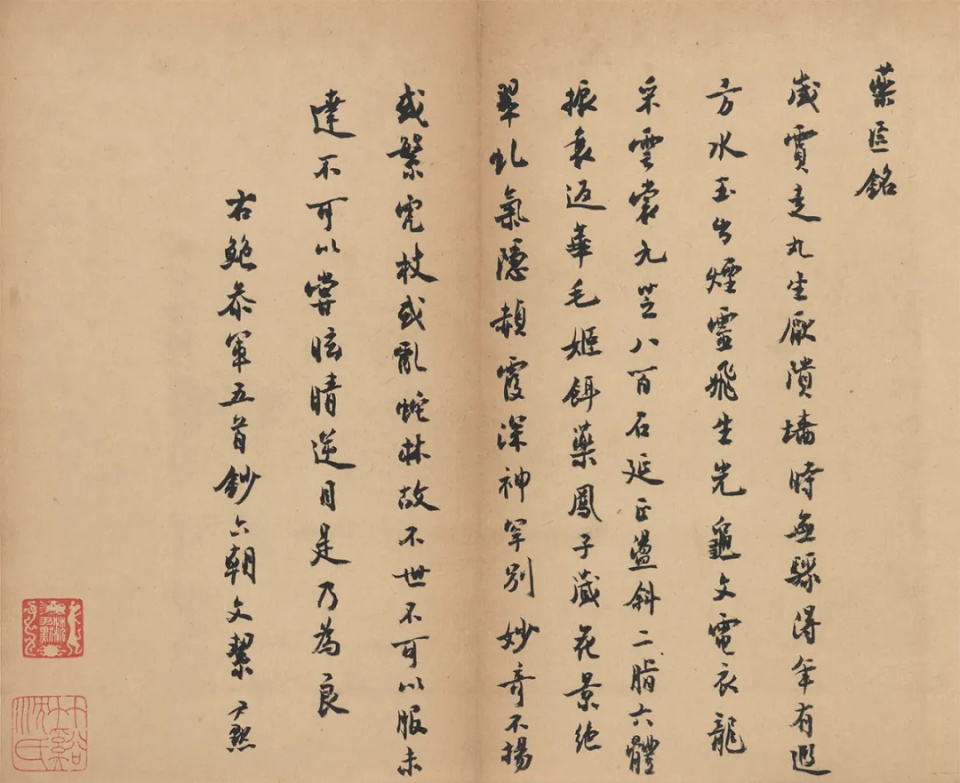 藥匳銘
歲霣走丸生厭隤墻時無驟得年有遐
方水玉出煙靈飛生光龜文電衣龍
采雲裳九芝八百石延正盪斜二脂六體
振衰返華毛姬餌藥鳳子藏花景絕
翠虬氣隱赬霞深神罕別妙奇不揚
或繁虎杖或亂蛇林故不世不可以服未
達不可以嘗眩睛逆目是乃為良
右鮑參軍五首鈔六朝文絜 尹默
竹谿沈氏